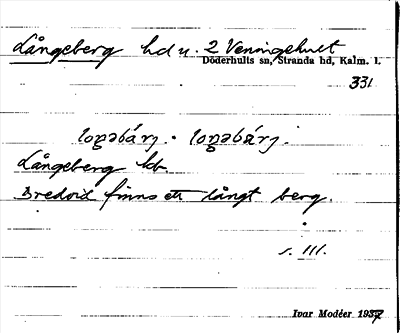 Långeberg hd u. 2 Veningehult
Döderhults sn, Stranda hd, Kalm. l.
331
Långeberg hd.
Bredvid finns ett långt berg.
s. III.
Ivar Modéer 1937